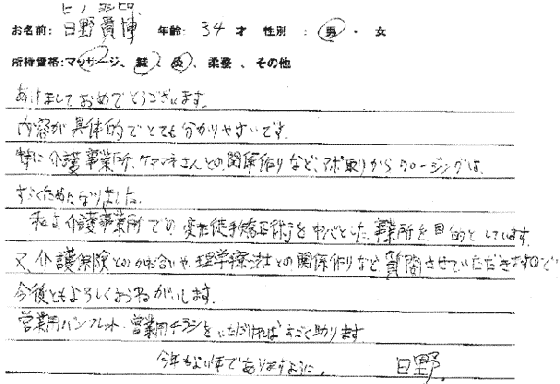 ヒノ
お名前: 日野貴博 年齢: 34 才 性別 : 男 ・ 女
所持資格:マッサージ、鍼、灸、柔整 、その他
あけましておめでとうございます。
内容が具体的でとても分かりやすいです。
特に介護事業所、ケアマネさんとの関係作りなど、アポ取りからクロージングは、
すごくためになりました。
私は、介護事業所での、変形徒手矯正術を中心とした、事業所を目的としています。
又、介護保険とのかね合いや、理学療法士との関係作りなど質問させていただきますので
今後ともよろしくおねがいします。
営業用パンフレット・営業用チラシをいただければすごく助ります
今年もよい年でありますように、 日野